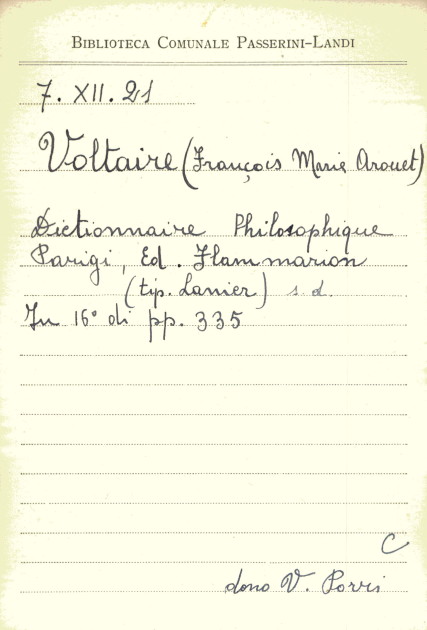 BIBLIOTECA COMUNALE PASSERINI-LANDI
7. XII. 21
Voltaire (François Marie Arouet)
Dictionnaire Philosophique
Parigi, Ed. Flammarion
(tip. Lanier) s. d.
In 16° di pp. 335
C
dono V. Porri